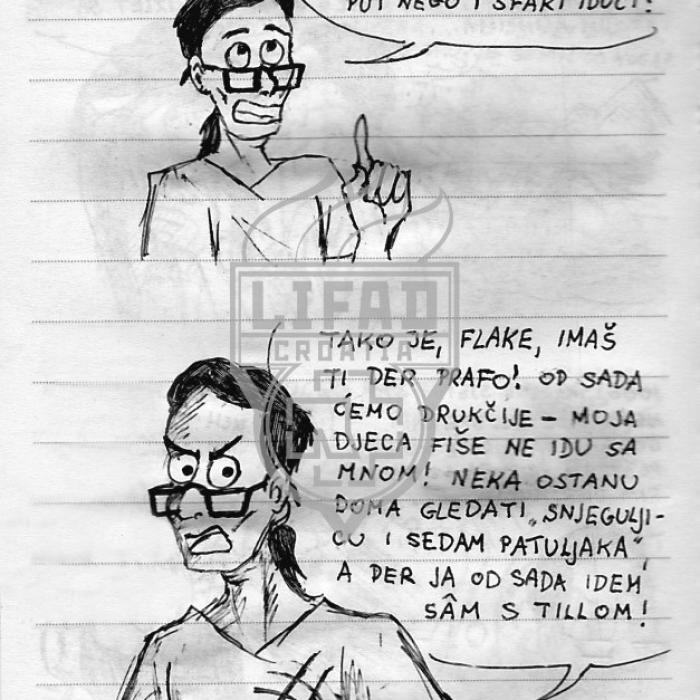 PUT NEGO I SFAKI IDUĆI!
LIFAD
CROATIA
TAKO JE, FLAKE, IMAŠ
TI DER PRAFO! OD SADA
ĆEMO DRUKČIJE – MOJA
DJECA FIŠE NE IDU SA
MNOM! NEKA OSTANU
DOMA GLEDATI „SNJEGULJI-
CU I SEDAM PATULJAKA“,
A DER JA OD SADA IDEM
SÂM S TILLOM!